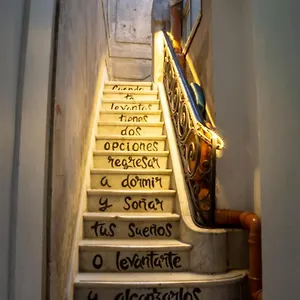 Cuando
te
levantas
tienes
dos
opciones
regresar
a dormir
y soñar
tus sueños
o levantarte
y alcanzarlos